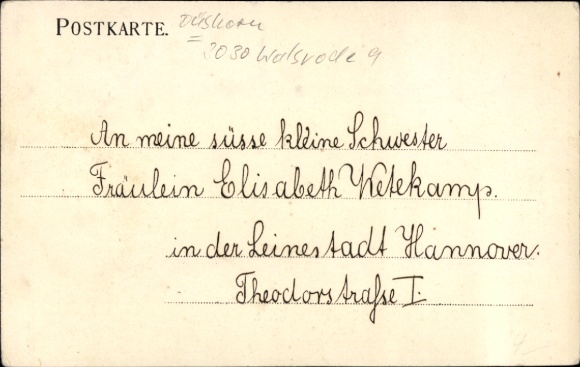 POSTKARTE. Düshorn
= 3030 Walsrode 9
An meine süsse kleine Schwester
Fräulein Elisabeth Wetekamp.
in der Leinestadt Hannover.
Theodorstraße I.